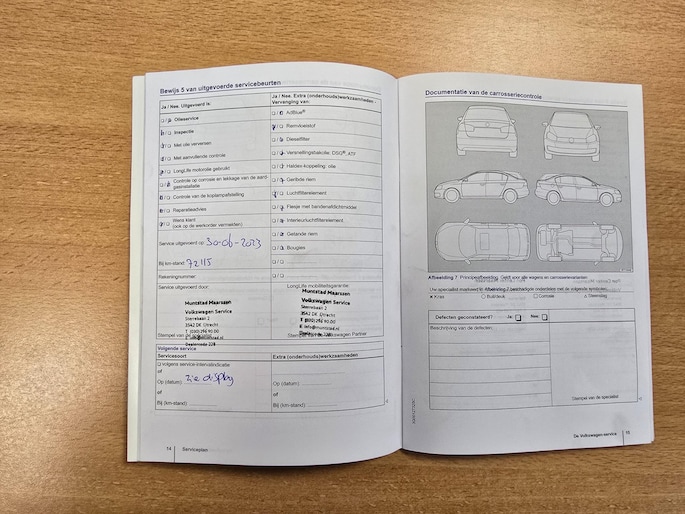 Bewijs 5 van uitgevoerde servicebeurten
Ja / Nee, Uitgevoerd is:
Olieservice
Inspectie
Met olie verversen
Met aanvullende controle
LongLife motorolie gebruikt
Controle op corrosie en lekkage van de aard-
gasinstallatie
Controle van de koplampafstelling
Reparatieadvies
Wens klant
(ook op de werkorder vermelden)
Service uitgevoerd op: 30-06-2023
Bij km-stand: 72115
Rekeningnummer:
Service uitgevoerd door:
Muntstad Maarssen
Volkswagen Service
Sterrebaan 2
3542 DK Utrecht
Dealercode 228
Stempel van de
Ja / Nee, Extra (onderhouds)werkzaamheden -
Vervanging van:
AdBlue®
Remvloeistof
Dieselfilter
Versnellingsbakolie: DSG®, ATF
Haldex-koppeling: olie
Geribde riem
Luchtfilterelement
Flesje met bandenafdichtmiddel
Interieurluchtfilterelement
Getande riem
Bougies
LongLife mobiliteitsgarantie:
Muntstad Maarssen
Volkswagen Service
Sterrebaan 2
3542 DK Utrecht
Dealercode 228
Volkswagen Partner
Volgende service
Servicesoort
volgens service-intervalindicatie
of
Op (datum) zie display
of
Bij (km-stand)
Extra (onderhouds)werkzaamheden
Op (datum)
of
Bij (km-stand)
14 Serviceplan
Documentatie van de carrosseriecontrole
Afbeelding 7 Principeafbeelding. Geldt voor alle wagens en carrosserievarianten
Uw specialist markeert in Afbeelding 7 beschadigde onderdelen met de volgende symbolen:
Kras Buil/deuk Corrosie Steenslag
Defecten geconstateerd? Ja: Nee:
Beschrijving van de defecten:
Stempel van de specialist
De Volkswagen-service 15